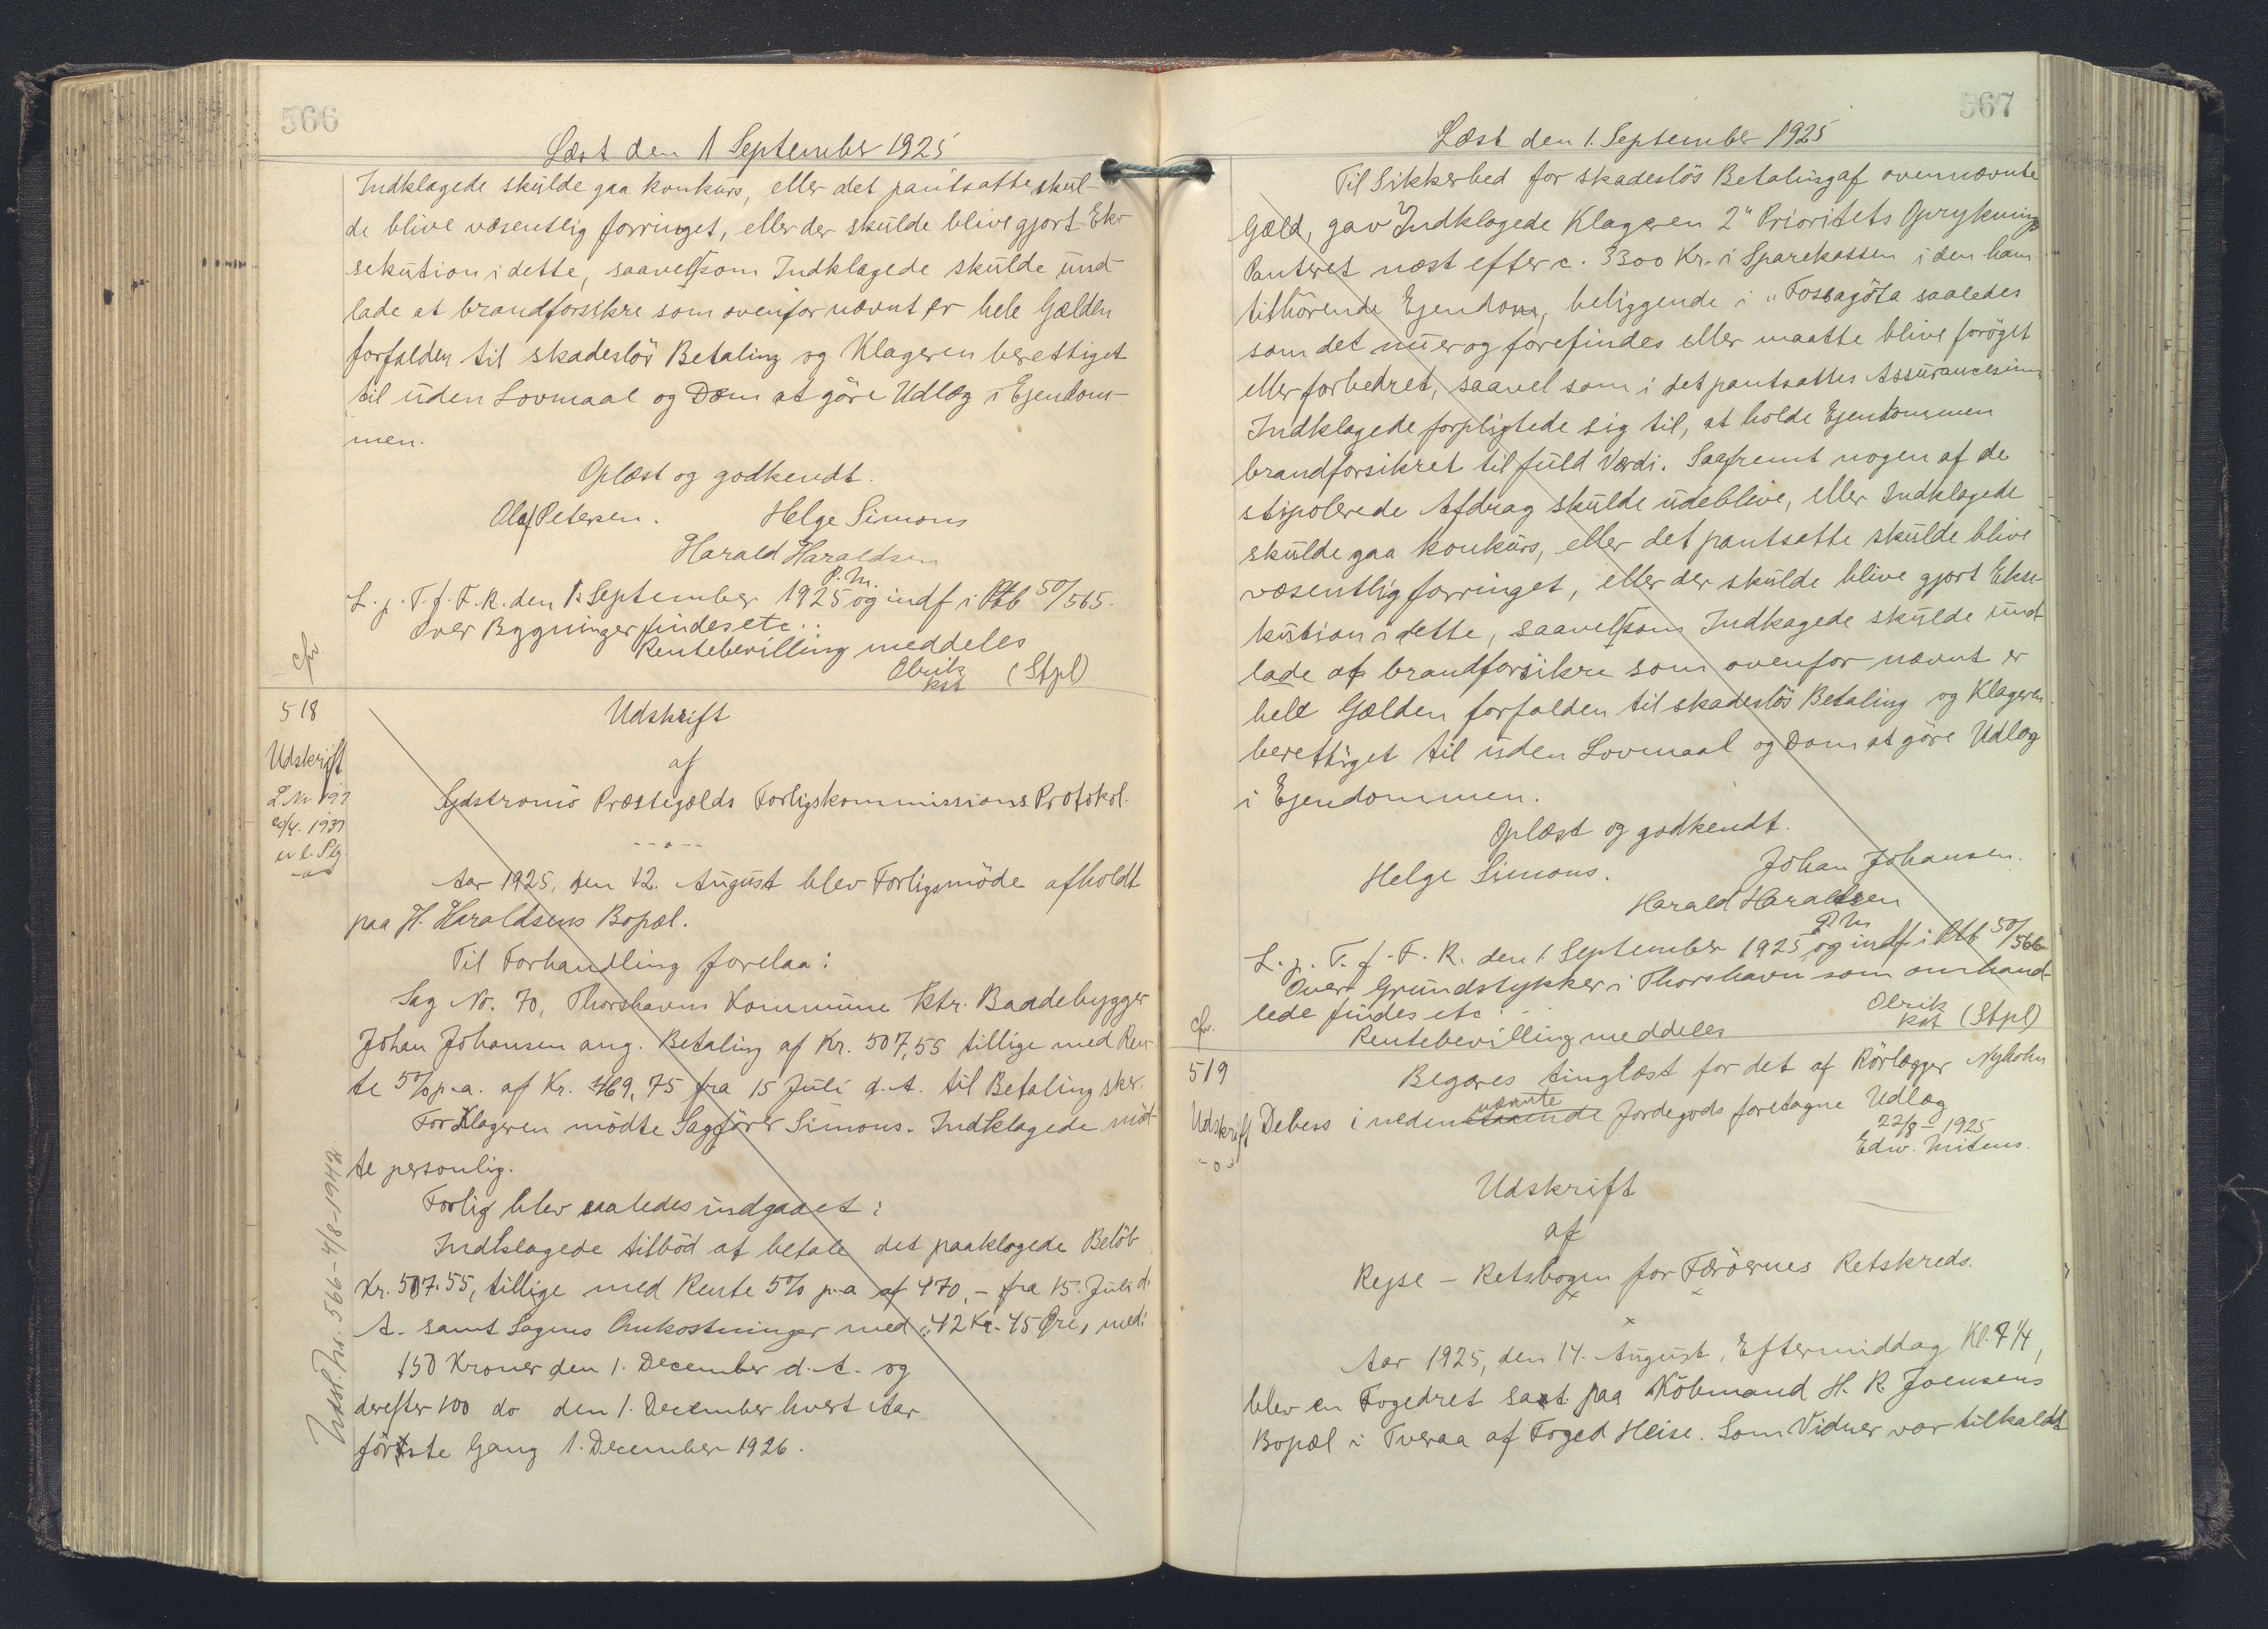 566
Læst den 1 September 1925
Indklagede skulde gaa konkurs, eller det pantsatte skul-
de blive væsentlig forringet, eller der skulde blive gjort Ek-
sekution i dette, saavelsom Indklagede skulde und-
lade at brandforsikre som ovenfor nævnt er hele Gælden
forfalden til skadeslös Betaling og Klageren berettiget
til uden Lovmaal og Dom at göre Udlæg i Ejendom-
men.
Oplæst og godkendt.
Olaf Petersen. Helge Simons
Harald Haraldsen
P.M.
L. p. T. f. F. R. den 1. September 1925 og indf i Ptb 50/565.
Over Bygninger findes etc..
Rentebevilling meddeles
Olrik
kst (Stpl)
cfr.
518
Udskrift
Udskrift
af
Sydströmö Præstegælds Forligskommissions Protokol.
--o--
Aar 1925, den 12. August blev Forligsmöde afholdt
paa H. Haraldsens Bopæl.
Til Forhandling forelaa:
Sag No. 70, Thorshavns Kommune ktr. Baadebygger
Johan Johansen ang. Betaling af Kr. 507,55 tillige med Ren-
te 5% p.a. af Kr. 469,75 fra 15 Juli d.A. til Betaling sker.
For Klageren mödte Sagförer Simons. Indklagede möd-
te personlig.
Forlig blev saaledes indgaaet:
Indklagede tilböd at betale det paaklagede Belöb
Kr. 507.55, tillige med Rente 5% p.a af 470,- fra 15. Juli d.
A. samt Sagens Omkostninger med: 42 Kr. 45 Øre, med:
150 Kroner den 1. December d.A. og
derefter 100 do den 1. December hvert Aar
förste Gang 1. December 1926.
Udsl. Nr. 566-4/8-1942
567
Læst den 1. September 1925
Til Sikkerhed for skadeslös Betaling af ovennævnte
Gæld, gav Indklagede Klageren 2" Prioritets Oprykning
Panteret næst efter c. 3300 Kr. i Sparekassen i den ham
tilhörende Ejendom, beliggende i "Fossagöta saaledes
som det nu er og forefindes eller maatte blive foröget
eller forbedret, saavel som i det pantsattes Assurancesum
Indklagede forpligtede sig til, at holde Ejendommen
brandforsikret til fuld Værdi. Saafremt nogen af de
stipolerede Afdrag skulde udeblive, eller Indklagede
skulde gaa konkurs, eller det pantsatte skulde blive
væsentlig forringet, eller der skulde blive gjort Ekse-
kution i dette, saavelsom Indkagede skulde und-
lade at brandforsikre som ovenfor nævnt er
hele Gælden forfalden til skadeslös Betaling og Klageren
berettiget til uden Lovmaal og Dom at göre Udlæg
i Ejendommen.
Oplæst og godkendt.
Helge Simons. Johan Johansen.
Harald Haraldsen
P.M
L. p. T. f. F. R. den 1. September 1925 og indf i Ptb 50/566
Over Grundstykker i Thorshavn som omhand-
lede findes etc..
Olrik
kst (Stpl)
cfr.
Rentebevilling meddeles
519
Begæres tinglæst for det af Rörlægger Nyholm
nævnte
Udskrift
-o-
Debess i nedenstaaende Jordegods foretagne Udlæg
22/8 - 1925
Edw. Mitens.
Udskrift
af
Rejse - Retsbogen for Færöernes Retskreds.
x
Aar 1925, den 14. August, Eftermiddag Kl. 7 1/4,
blev en Fogedret sat paa Köbmand H. R. Joensens
Bopæl i Tveraa af Foged Heise. Som Vidner var tilkaldt